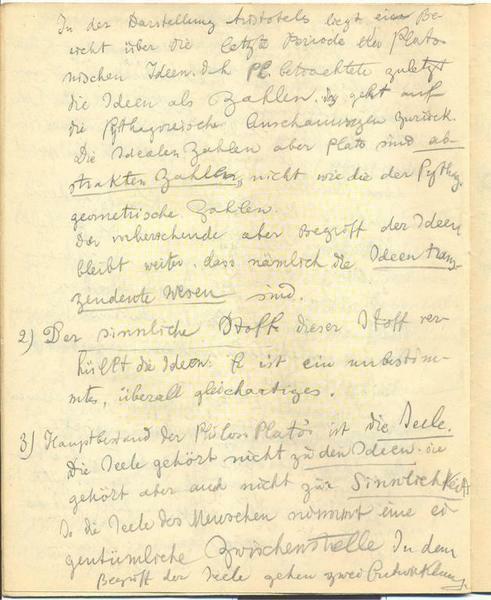 In der Darstellung Aristotels liegt eine Be-
richt über die letzte Periode der Plato-
nischen Ideen. d.h. Pl. betrachtete zuletzt
die Ideen als Zahlen. geht auf
die Pythagoreische Anschauungen zurück.
Die Idealen Zahlen aber Plato sind ab-
strakten Zahlen, nicht wie die der Pythag.
geometrische Zahlen.
Der vorherrschende aber Begriff der Ideen
bleibt weiter, dass nämlich die Ideen tran-
zendente Wesen sind.
2) Der sinnliche Stoff dieser Stoff ver-
hüllt die Ideen. Er ist ein unbestim-
mtes, überall gleichartiges.
3) Hauptbestand der Philos. Platos ist die Seele.
Die Seele gehört nicht zu den Ideen. sie
gehört aber auch nicht zur Sinnlichkeit
So die Seele des Menschen nimmt eine ei-
gentümliche Zwischenstelle. In dem
Begriff der Seele gehen zwei Entwicklung